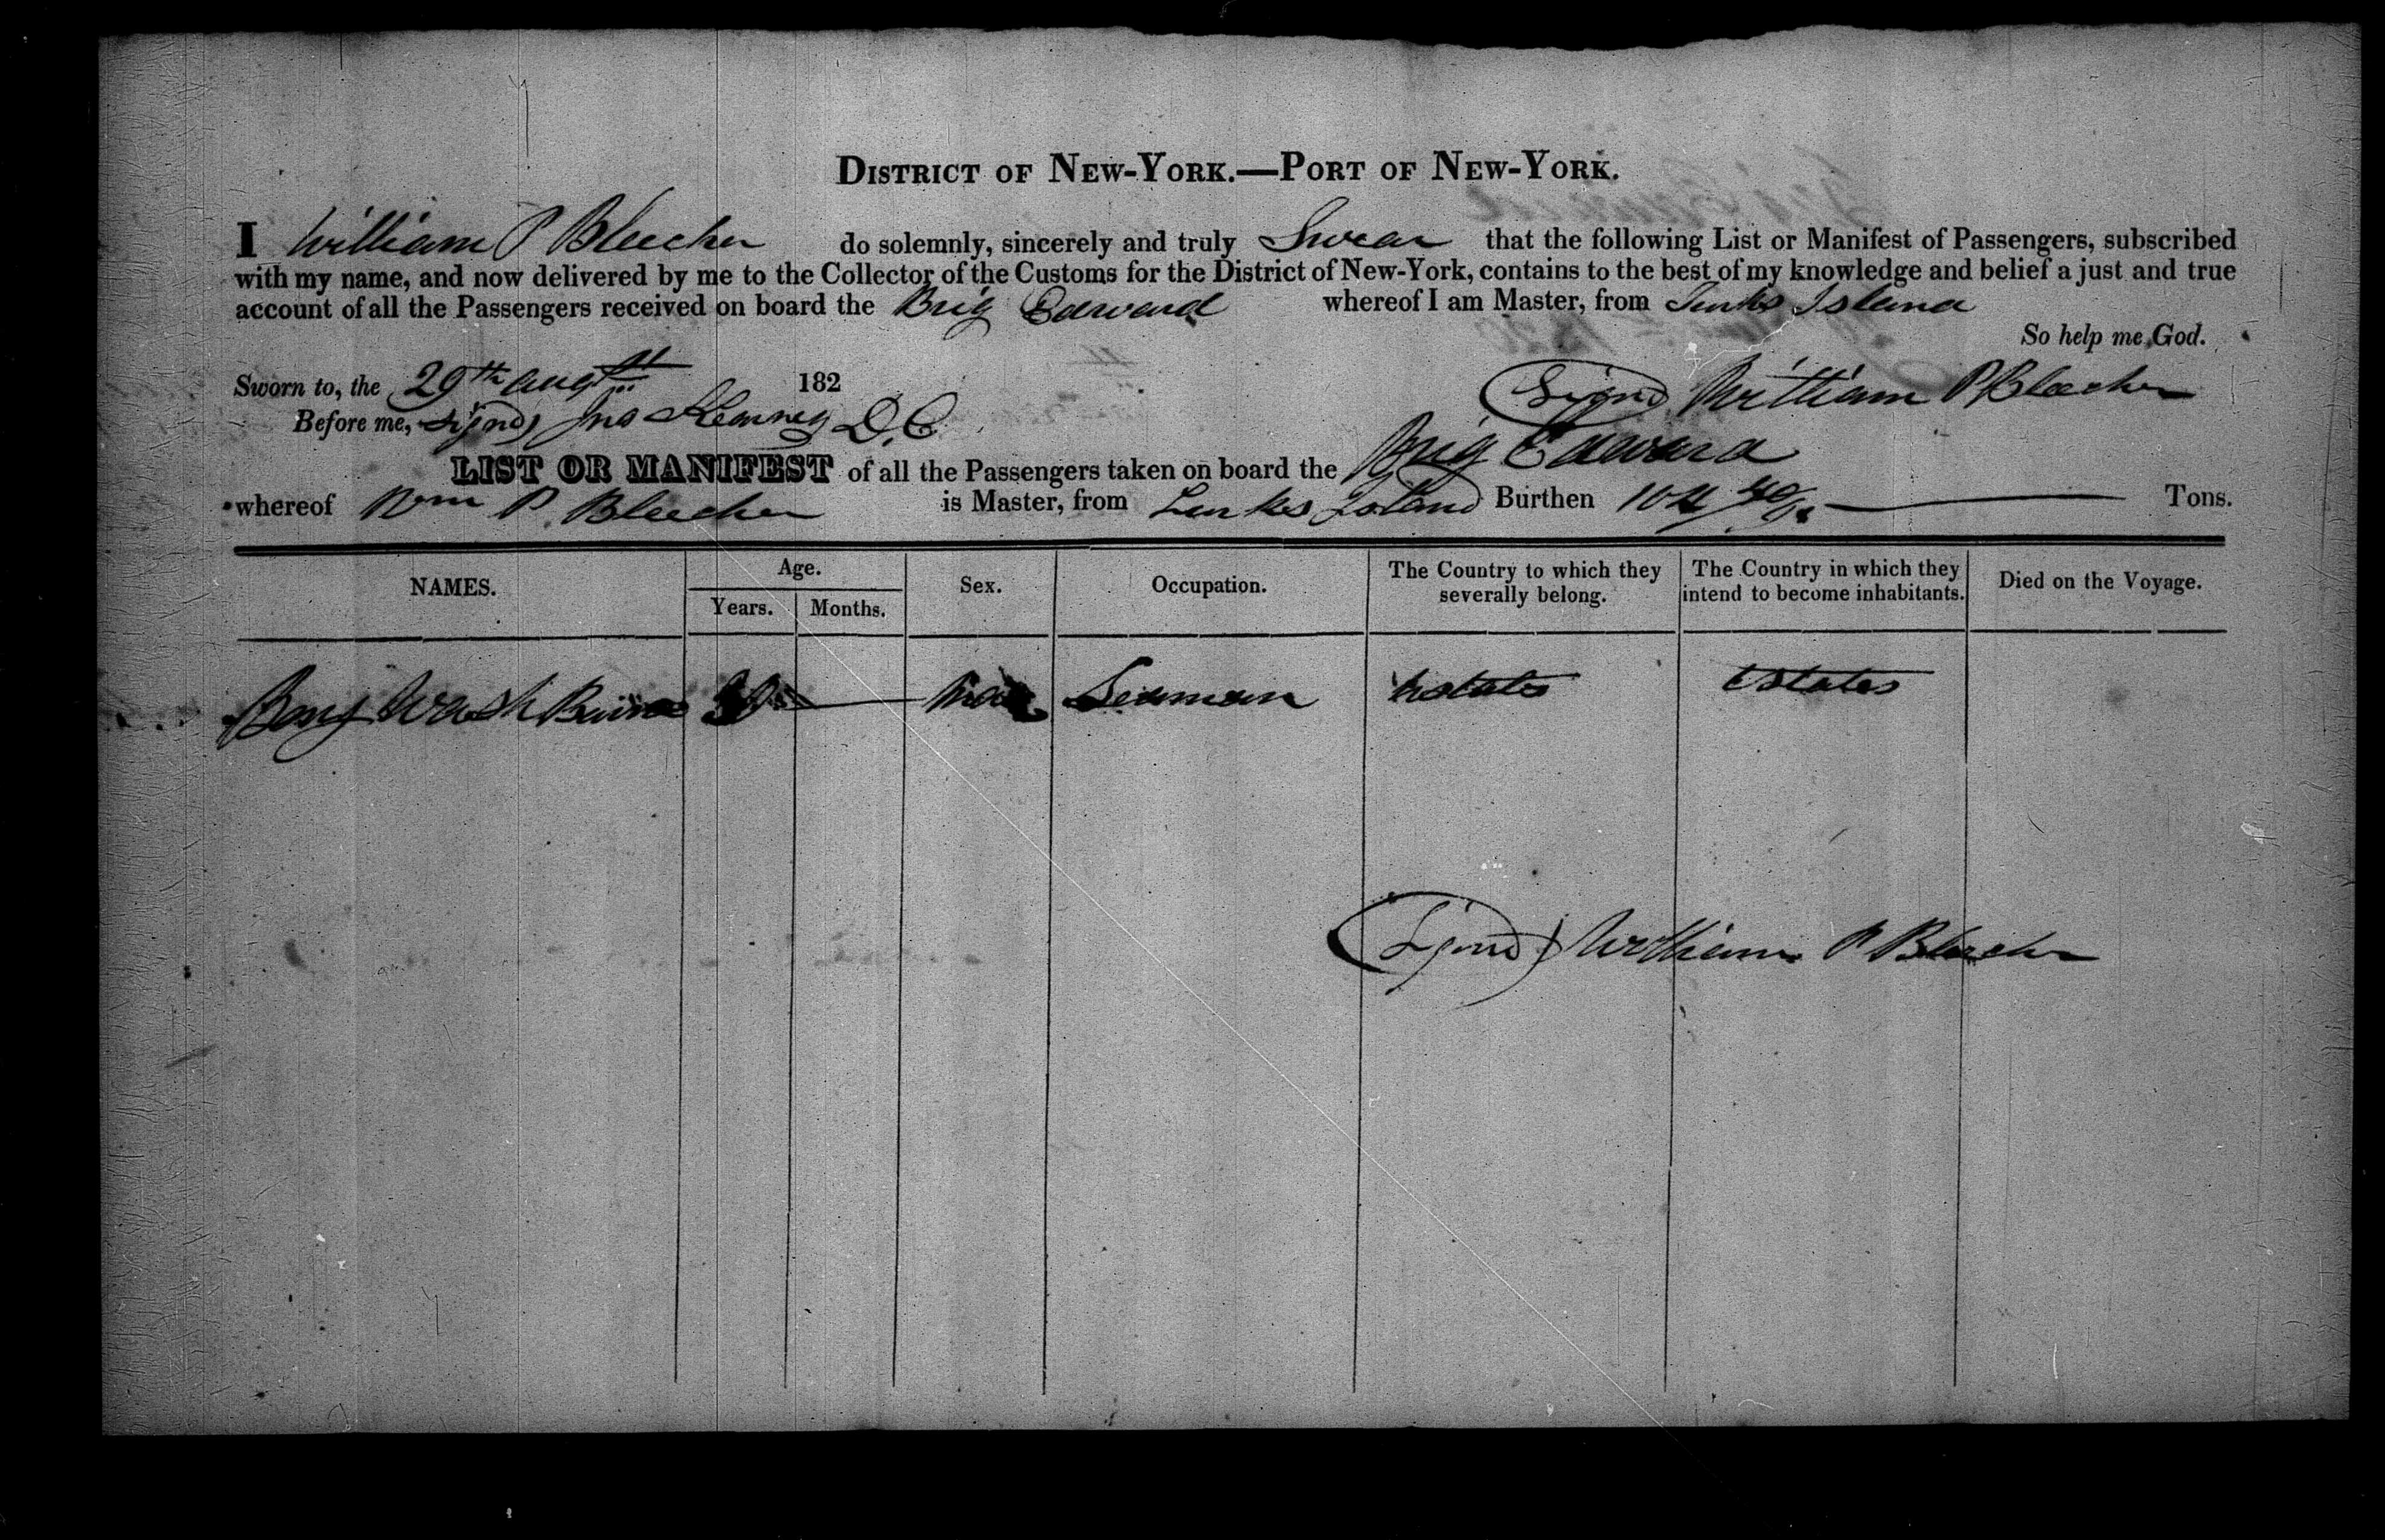 DISTRICT OF NEW-YORK.—PORT OF NEW-YORK.
I William P Bleecker do solemnly, sincerely and truly Swear that the following List or Manifest of Passengers, subscribed
with my name, and now delivered by me to the Collector of the Customs for the District of New-York, contains to the best of my knowledge and belief a just and true
account of all the Passengers received on board the Brig Edward whereof I am Master, from Turks Island
So help me God.
Sworn to, the 29th augst 182
(Signd) William P Bleecker
Before me, Signd) Jno Kearney D.C
LIST OR MANIFEST of all the Passengers taken on board the Brig Edward
whereof Wm P Bleecker is Master, from Turks Island Burthen 104 Tons.
NAMES. Age. Sex. Occupation. The Country to which they severally belong. The Country in which they intend to become inhabitants. Died on the Voyage.
Years. Months.
Benj Wash 30 Seaman Ustates Ustates
(Signd) William P Bleecker